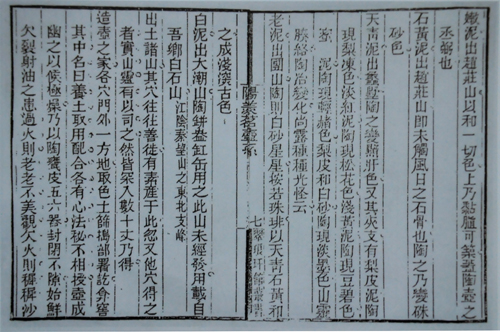 嫩泥出趙莊山以和一切色上乃黏膩可築葢陶壺之
丞弼也
石黃泥出趙莊山即未觸風日之石骨也陶之乃變硃
砂色
天青泥出蠡墅陶之變黯肝色又其夾支有梨皮泥陶
現梨凍色淡紅泥陶現松花色淺黃泥陶現豆碧色
蜜泥陶現輕赭色梨皮和白砂陶現淡墨色山靈
腠絡陶冶變化尚露種種光怪云
老泥出團山陶則白砂星星按若珠琲以天青石黃和
陽羡茗壺系 七 翠琅玕館叢書
之成淺深古色
白泥出大潮山陶缾盎缸缶用之此山未經發用載自
吾鄉白石山 江陰秦望山之東北支峰
出土諸山其穴往往善徙有素產于此忽又他穴得之
者實山靈有以司之然皆深入數十丈乃得
造壺之家各穴門外一方地取色土篩搗部署訖弇窖
其中名曰養土取用配合各有心法秘不相授壺成
幽之以候極燥乃以陶甕庋五六器封閉不隙始鮮
欠裂射油之患過火則老老不美觀欠火則穉穉沙